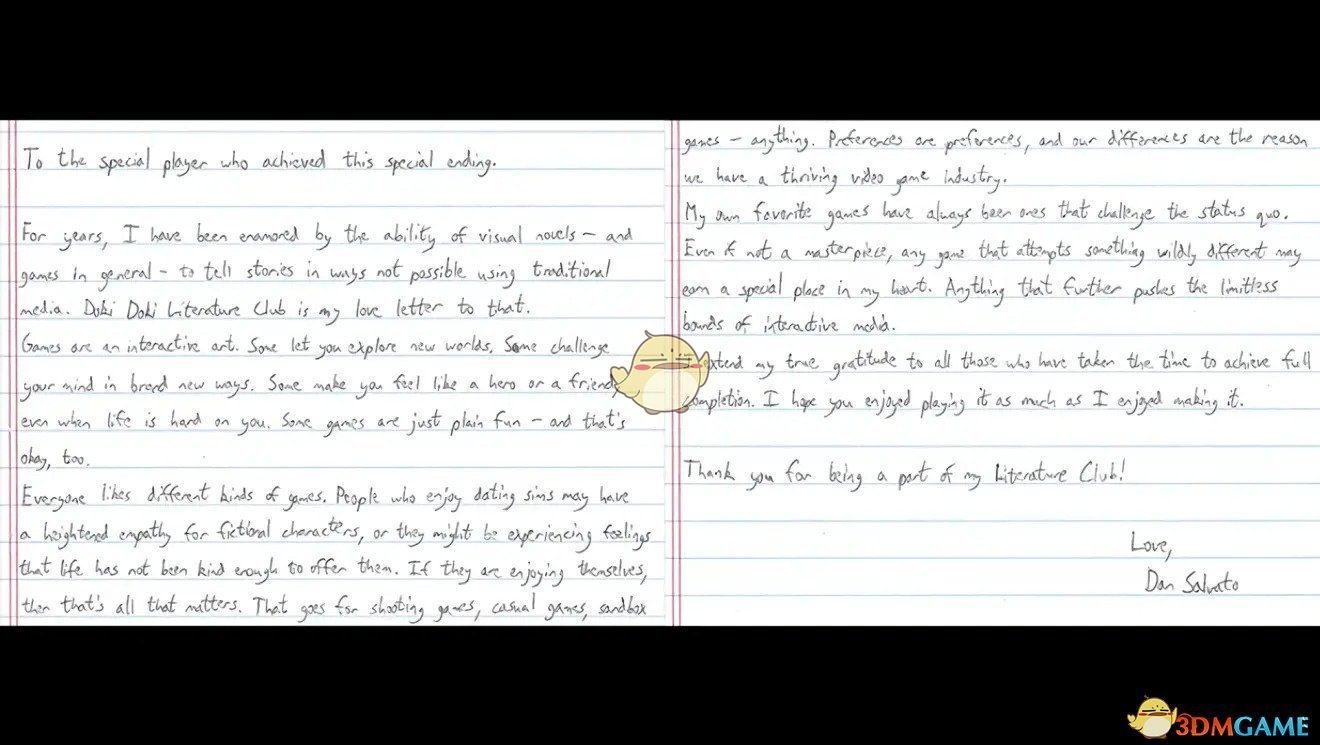 To the special player who achieved this special ending.
For years, I have been enamored by the ability of visual novels - and
games in general - to tell stories in ways not possible using traditional
media. Doki Doki Literature Club is my love letter to that.
Games are an interactive art. Some let you explore new worlds. Some challenge
your mind in brand new ways. Some make you feel like a hero or a friend
even when life is hard on you. Some games are just plain fun - and that's
okay, too.
Everyone likes different kinds of games. People who enjoy dating sims may have
a heightened empathy for fictional characters, or they might be experiencing feelings
that life has not been kind enough to offer them. If they are enjoying themselves,
then that's all that matters. That goes for shooting games, casual games, sandbox
games - anything. Preferences are preferences, and our differences are the reason
we have a thriving video game industry.
My own favorite games have always been ones that challenge the status quo.
Even if not a masterpiece, any game that attempts something wildly different may
earn a special place in my heart. Anything that further pushes the limitless
bounds of interactive media.
extend my true gratitude to all those who have taken the time to achieve full
completion. I hope you enjoyed playing it as much as I enjoyed making it.
Thank you for being a part of my Literature Club!
Love,
Dan Salvato
3DMGAME